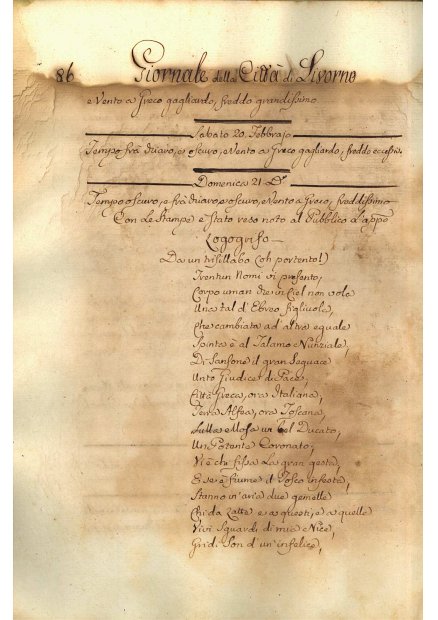 86 Giornale della Città di Livorno
e Vento a Greco gagliardo, freddo grandissimo
Sabato 20, Febbrajo
Tempo frà chiaro, e oscuro, e Vento a Greco gagliardo, freddo
Domenica 21 Do
Tempo oscuro, e frà chiaro, e oscuro, e Vento a Greco, freddissimo
Con le Stampe è stato reso noto al Pubblico l'appo
Logogrifo
Da un trisillabo (oh portento!)
Trentun Nomi vi presento;
Corpo uman che in Ciel non vola
Una tal d'Ebreo figliuola,
Che cambiata ad'altra eguale
Spinta è al Talamo Nunziale,
Di Sansone il gran Seguace
Unto Giudice di Pace,
Città Greca, ora Italiana,
Terra Alfea, ora Toscana,
Sulla Mosa un bel Ducato,
Un Potente Coronato;
Vi è chi fissa la gran gesta,
E se è fiume il Tosco infesta,
Stanno in'aria due gemelle
Chi da Latte e a questi, e a quelle
Vivi Sguardi di mie Nice,
Gridi son d'un'infelice,